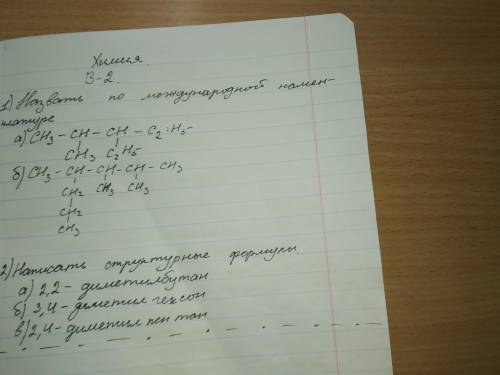 Химия.
В-2.
1) Назвать по международной номен-
клатуре
а) CH3 - CH - CH - C2H5
CH3 C2H5
б) CH3 - CH - CH - CH - CH3
CH2 CH3 CH3
CH2
CH3
2) Написать структурные формулы.
а) 2,2 - диметилбутан
б) 3,4 - диметил гексон
в) 2,4 - диметил пентан